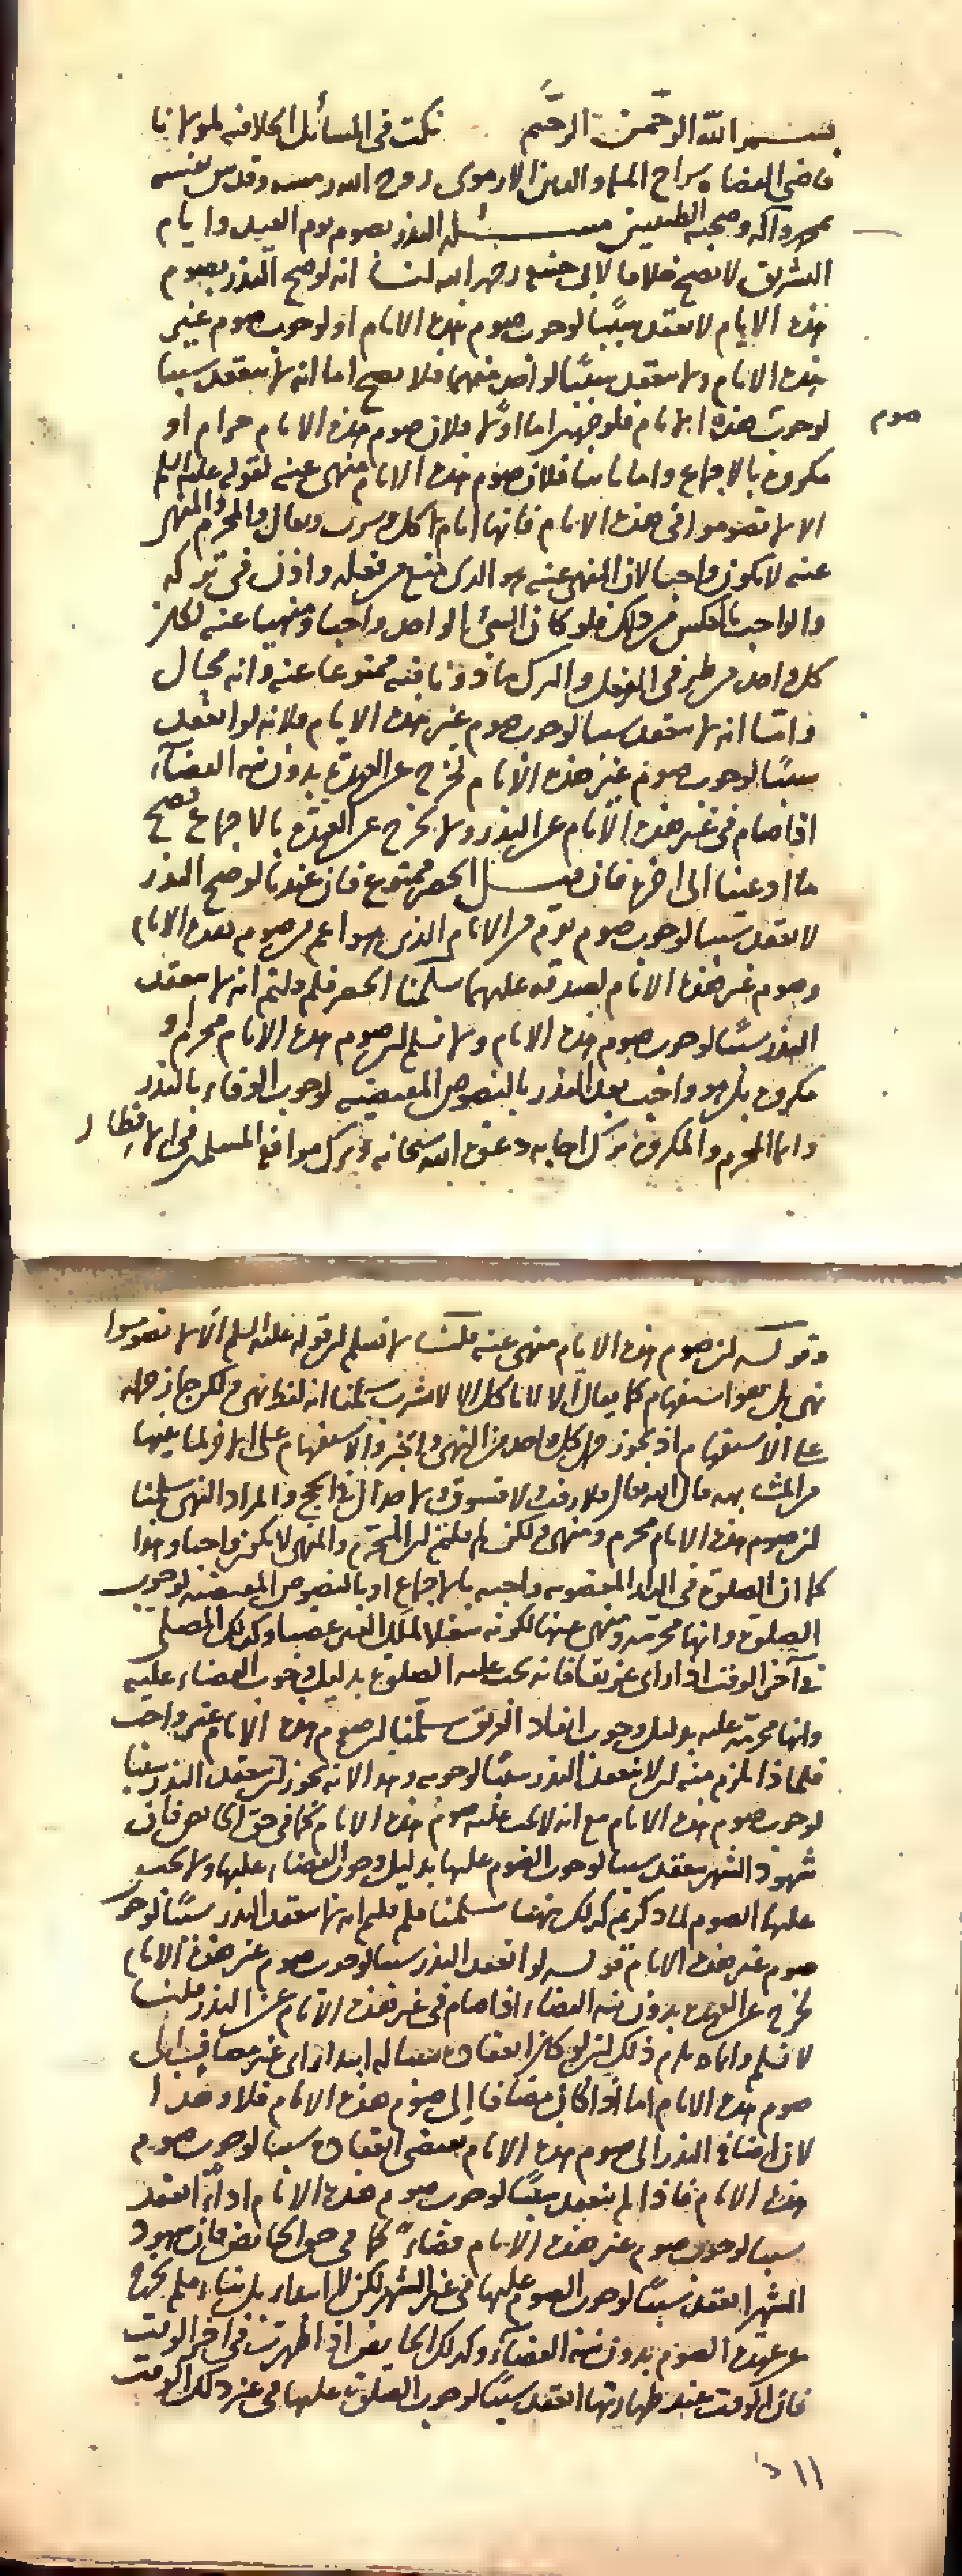 بسم الله الرحمن الرحيم نكت في المسائل الخلافية لمولانا
قاضي القضاة سراج الملة والدين الارموي روح الله رمسه وقدس نفسه
بمحمد وآله وصحبه الطيبين مسئلة النذر بصوم يوم العيد وايام
التشريق لا يصح خلافا لابي حنيفة رضي الله لنا انه لو صح النذر بصوم
هذه الايام لانعقد سببا لوجوب صوم هذه الايام او لوجوب صوم غير
هذه الايام ولا ينعقد سببا لواحد منهما فلا يصح اما انه لا ينعقد سببا
لوجوب هذه الايام فلوجهين اما اولا فلان صوم هذه الايام حرام او
صوم
مكروه بالاجماع واما ثانيا فلان صوم هذه الايام منهي عنه لقوله عليه السلم
الا لا تصوموا في هذه الايام فانها ايام اكل وشرب وبعال والمحرم والمنهي
عنه لا يكون واجبا لان المنهي عنه هو الذي منع من فعله واذن في تركه
والواجب بالعكس من ذلك فلو كان الشئ الواحد واجبا ومنهيا عنه لكان
كل واحد من طرفي الفعل والترك ماذونا فيه ممنوعا عنه وانه محال
واما انه لا ينعقد سببا لوجوب صوم غير هذه الايام فلانه لو انعقد
سببا لوجوب صوم غير هذه الايام لخرج عن العهدة بدون نية القضاء
اذا صام في غير هذه الايام عن النذر ولا يخرج عن العهدة بالاجماع فصح
ما ادعينا الى اخره فان قيل الحصر ممنوع فان عندنا لو صح النذر
لانعقد سببا لوجوب صوم يوم من الايام الذي هو اعم من صوم هذه الايام
وصوم غير هذه الايام لصدقه عليهما سلمنا الحصر فلم قلتم انه لا ينعقد
النذر سببا لوجوب صوم هذه الايام ولا نسلم ان صوم هذه الايام محرم او
مكروه بل هو واجب بعد النذر بالنصوص المقتضية لوجوب الوفاء بالنذر
وانما المحرم والمكروه ترك اجابة دعوة الله سبحانه وترك موافقة المسلمين في الافطار
وقوله ان صوم هذه الايام منهي عنه قلنا لا نسلم ان قوله عليه السلم الا لا تصوموا
نهي بل هو استفهام كما يقال الا لا تاكل الا لا تشرب سلمنا انه لفظ نهي ولكن جاز حمله
على الاستفهام اذ يجوز حمل كل واحد من النهي والخبر والاستفهام على الاخر لما بينها
من المشابهة قال الله تعالى فلا رفث ولا فسوق ولا جدال في الحج والمراد النهي سلمنا
ان صوم هذه الايام محرم ومنهي ولكن لم قلتم ان المحرم والمنهي لا يكون واجبا وهذا
كما ان الصلوة في الدار المغصوبة واجبة بالاجماع او بالنصوص المقتضية لوجوب
الصلوة وانها محرمة ومنهي عنها لكونه شغلا لملك الغير غصبا وكذلك المصلي
في آخر الوقت اذا راى غريقا فانه يجب عليه الصلوة بدليل وجوب القضاء عليه
وانها محرمة عليه بدليل وجوب انقاذ الغريق سلمنا ان صوم هذه الايام غير واجب
فلماذا يلزم منه ان لا ينعقد النذر سببا لوجوبه وهذا لانه يجوز ان ينعقد النذر سببا
لوجوب صوم هذه الايام مع انه لا يجب عليه صوم هذه الايام كما في حق الحائض فان
شهود الشهر ينعقد سببا لوجوب الصوم عليها بدليل وجوب القضاء عليها ولا يجب
عليها الصوم لما ذكرتم كذلك ههنا سلمنا فلم قلتم انه لا ينعقد النذر سببا لوجوب
صوم غير هذه الايام قوله لو انعقد النذر سببا لوجوب صوم غير هذه الايام
لخرج عن العهدة بدون نية القضاء اذا صام في غير هذه الايام عن النذر قلنا
لا نسلم وانما يلزم ذلك ان لو كان انعقاده سببا له ابتداء اي غير مضاف الى
صوم هذه الايام اما اذا كان مضافا الى صوم هذه الايام فلا وهذا
لان اضافة النذر الى صوم هذه الايام يقتضي انعقاده سببا لوجوب صوم
هذه الايام فاذا لم ينعقد سببا لوجوب صوم هذه الايام اداء انعقد
سببا لوجوب صوم غير هذه الايام قضاء كما في حق الحائض فان شهود
الشهر انعقد سببا لوجوب الصوم عليها في غير الشهر لكن لا ابتداء بل بناء فلم يخرج
عن عهدة الصوم بدون نية القضاء وكذلك الحائض اذا طهرت في اخر الوقت
فان الوقت عند طهارتها انعقد سببا لوجوب الصلوة عليها في غير ذلك الوقت